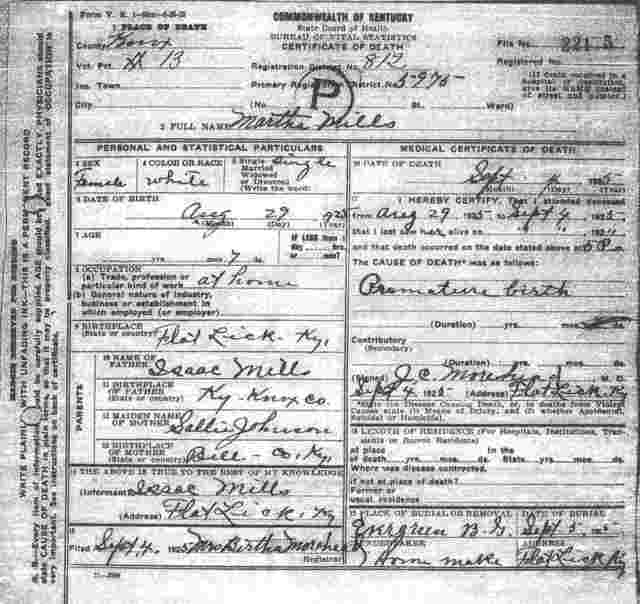 Form V. S. 1-
COMMONWEALTH OF KENTUCKY
State Board of Health
BUREAU OF VITAL STATISTICS
CERTIFICATE OF DEATH
1 PLACE OF DEATH
County Knox
Vot. Pct. 13
Inc. Town
City
Registration District No. 812
Primary Registration District No. 5975
(No. St. Ward)
File No.
Registered No.
(If death occurred in a hospital or institution, give its NAME instead of street and number.)
P
2 FULL NAME Martha Mills
PERSONAL AND STATISTICAL PARTICULARS
3 SEX
Female
4 COLOR OR RACE
white
5 Single
Married
Widowed
or Divorced
(Write the word)
Single
6 DATE OF BIRTH
Aug 29 1925
(Month) (Day) (Year)
7 AGE
yrs. mos. 7 ds.
IF LESS than
8 OCCUPATION
(a) Trade, profession or
particular kind of work at home
(b) General nature of industry,
business or establishment in
which employed (or employer)
9 BIRTHPLACE
(State or country) Flat Lick Ky.
PARENTS
10 NAME OF
FATHER Isaac Mills
11 BIRTHPLACE
OF FATHER
(State or country) Ky Knox Co.
12 MAIDEN NAME
OF MOTHER Sallie Johnson
13 BIRTHPLACE
OF MOTHER
(State or country) Bell Co. Ky
14 THE ABOVE IS TRUE TO THE BEST OF MY KNOWLEDGE
(Informant) Isaac Mills
(Address) Flat Lick, Ky
15
Filed Sept 4, 1925 Mrs Bertha
Registrar
MEDICAL CERTIFICATE OF DEATH
16 DATE OF DEATH
Sept 4 1925
(Month) (Day) (Year)
17 I HEREBY CERTIFY, That I attended deceased
from Aug 29 1925 to Sept 4 1925
that I last saw her alive on
and that death occurred on the date stated above at
The CAUSE OF DEATH* was as follows:
Premature birth
(Duration) yrs. mos. ds.
Contributory
(Secondary)
(Duration) yrs. mos. ds.
(Signed) J. C. M. D.
Sept 4 1925 (Address) Flat Lick Ky
*State the Disease Causing Death, or, in deaths from Violent
Causes state (1) Means of Injury, and (2) whether Accidental,
Suicidal or Homicidal.
18 LENGTH OF RESIDENCE (For Hospitals, Institutions, Transients or Recent Residents)
At place In the
of death yrs. mos. ds. State yrs. mos. ds.
Where was disease contracted,
if not at place of death?
Former or
usual residence
19 PLACE OF BURIAL OR REMOVAL
Evergreen B. G.
DATE OF BURIAL
Sept 5 1925
20 UNDERTAKER
Home make
Flat Lick Ky
MARGIN RESERVED FOR BINDING
WRITE PLAINLY WITH UNFADING INK—THIS IS A PERMANENT RECORD